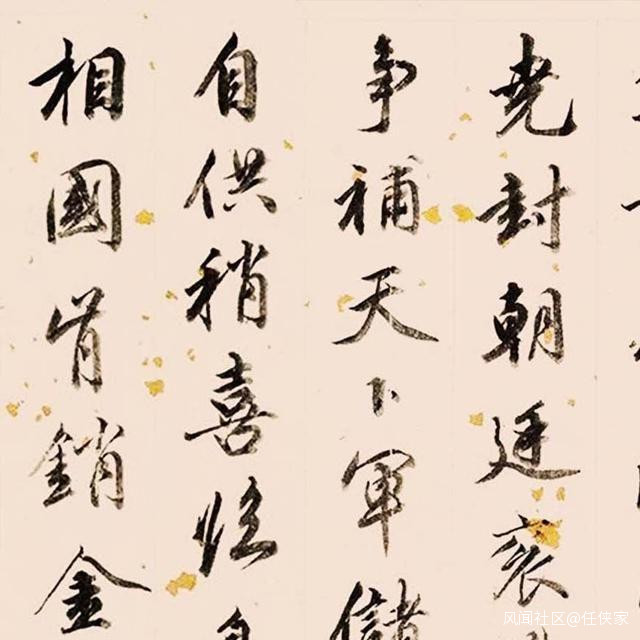 堯封朝廷衮
爭補天下軍儲
自供稍喜臨
相國肯銷金
风闻社区@任侠家